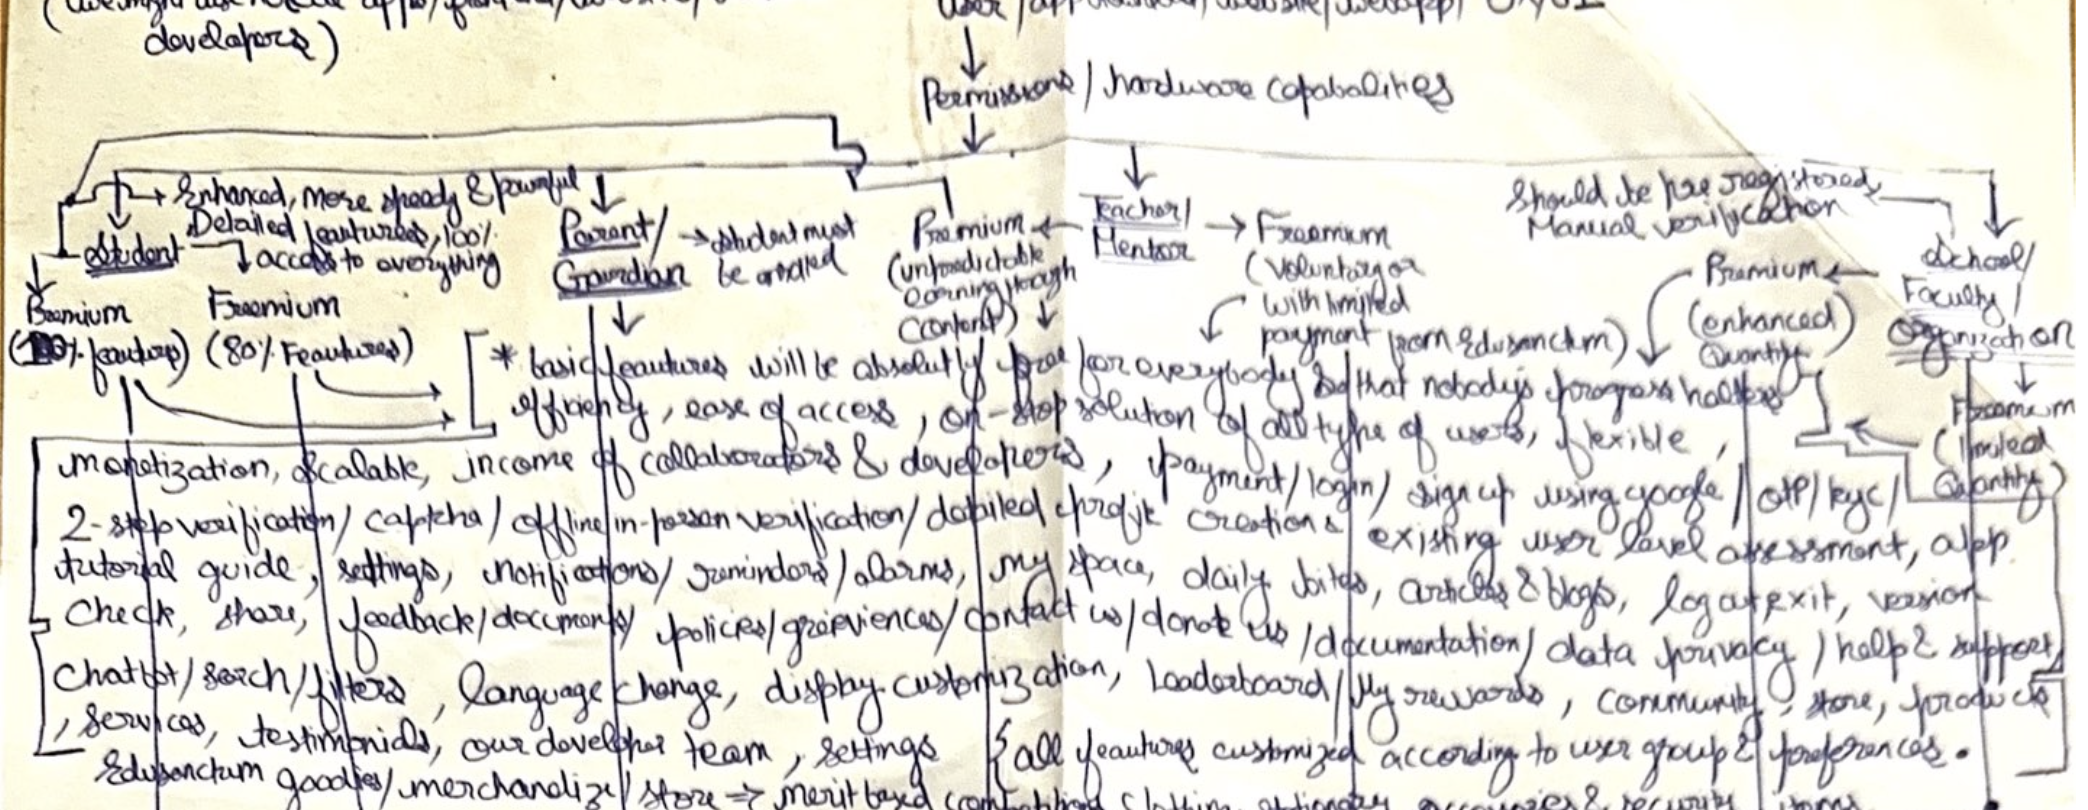 developers)
Permissions / hardware capabalities
Enhanced, more speedy & powerful
Detailed feautures, 100%
access to everything
Student
Premium
Freemium
(80% Feautures)
Parent/
Guardian
student must
be enrolled
Premium
(unpredictable
earning through
content)
Teacher/
Mentor
Freemium
(voluntary or
with limited
payment from Edusanctum)
Should be pre registered,
Manual verification
Premium
(enhanced)
Quantity
School/
Faculty/
Organization
Freemium
(limited
Quantity)
* basic feautures will be absolutly free for everybody so that nobody's progress halters
efficiency, ease of access, on-stop solution of all type of users, flexible,
monetization, scalable, income of collaborators & developers, payment/login/ sign up using google / OTP/ kyc/
2-step verification/ captcha/ offline in-person verification/ detailed profile creations existing user level assessment, app
tutorial guide, settings, notifications/ reminders/ alarms, my space, daily bites, articles & blogs, logout exit, version
check, share, feedback/documents/ policies/grieviences/ contact us/ donate us /documentation/ data privacy / help & support,
Chatbot/ serch/ filters, language change, display customization, Leaderboard/ My rewards, community, store, products
, services, testimonials, our developer team, settings {all feautures customized according to user group & preferences.
Edusanctum goodies/ merchandize/ store → merit based